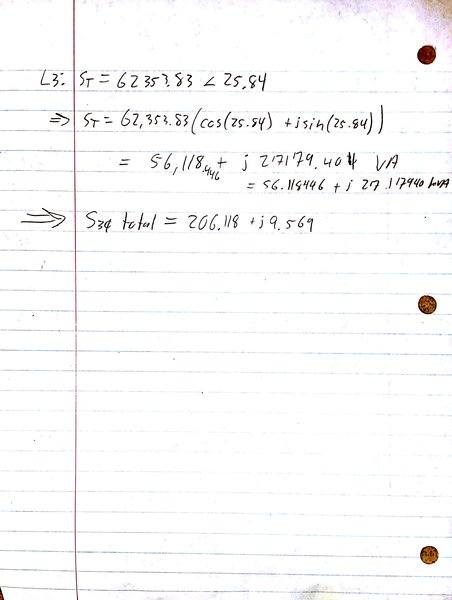 L3: S_T = 62353.83 ∠ 25.84
⇒ S_T = 62,353.83 (cos(25.84) + j sin(25.84))
= 56,118.446 + j 27179.404 VA
= 56.118446 + j 27.17940 kVA
⇒ S3φ total = 206.118 + j9.569